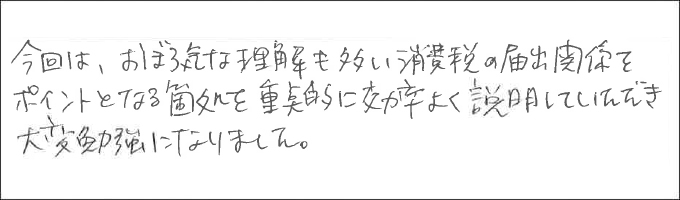 今回は、おぼろ気な理解も多い消費税の届出関係を
ポイントとなる箇処を重点的に効率よく説明していただき
大変勉強になりました。